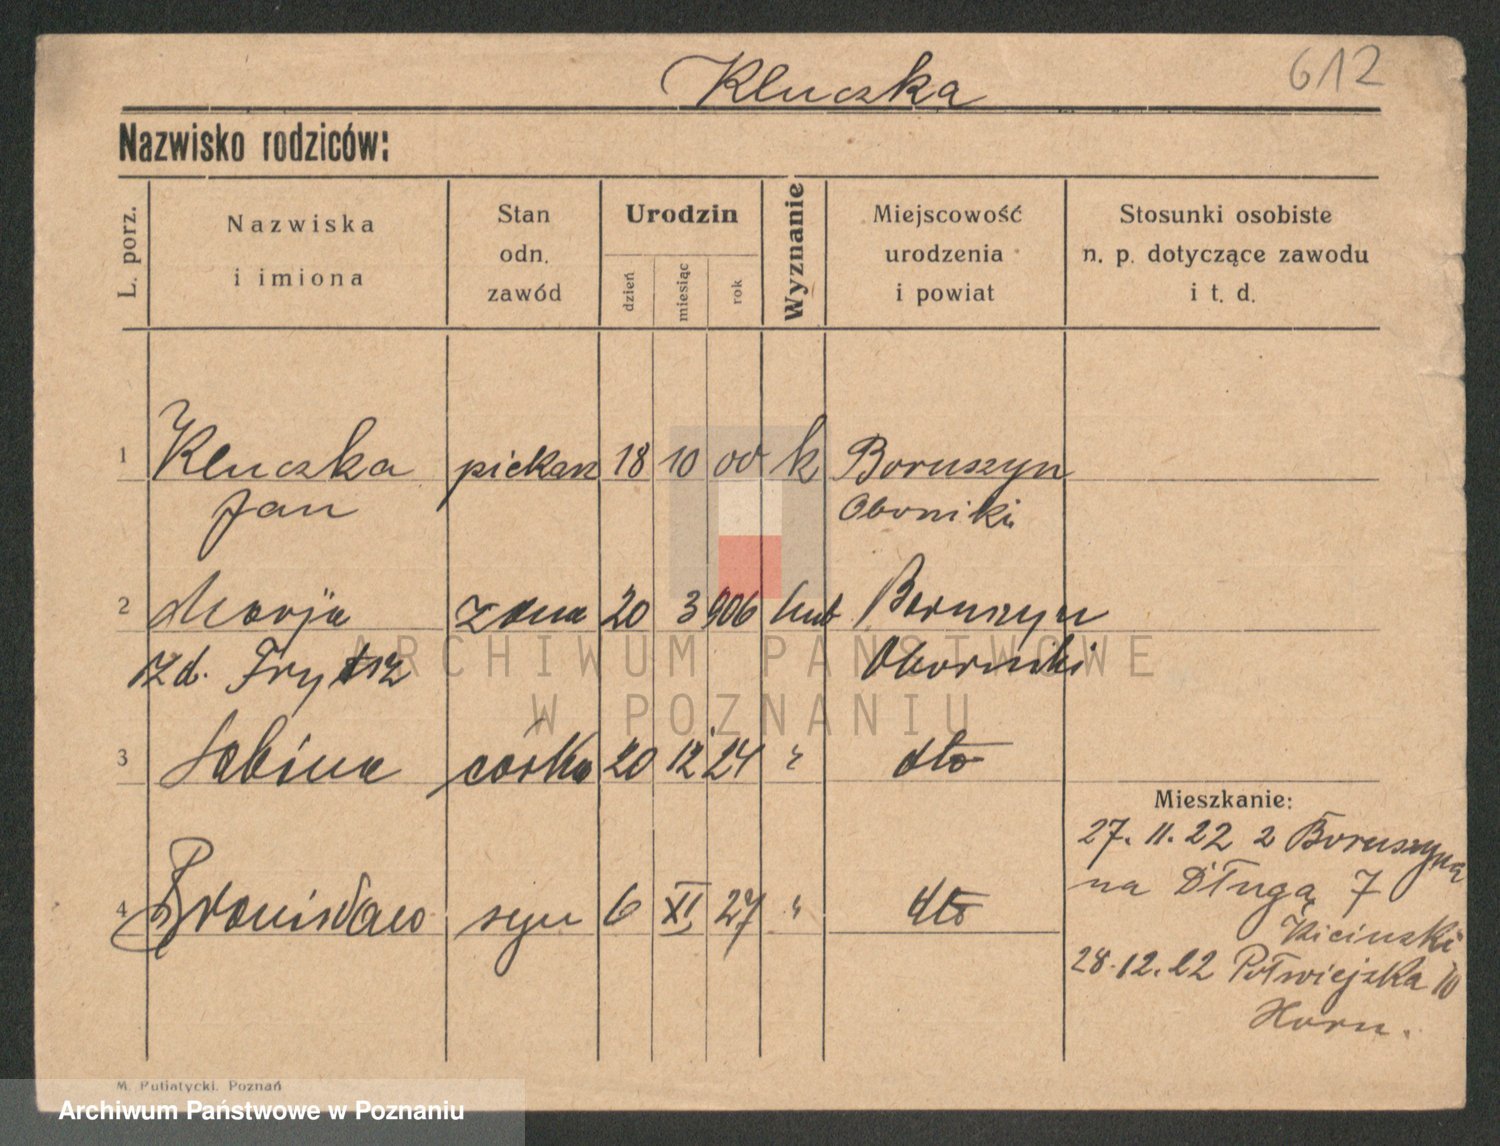 Kluczka
612
Nazwisko rodziców:
L. porz.
Nazwiska
i imiona
Stan
odn.
zawód
Urodzin
dzień
miesiąc
rok
Wyznanie
Miejscowość
urodzenia
i powiat
Stosunki osobiste
n. p. dotyczące zawodu
i t. d.
1 Kluczka piekarz 18 10 00 k Boruszyn
Jan Oborniki
2 Marja żona 20 3 906 Boruszyn
zd. Oborniki
3 Sabina córka 20 12 24 " dto
4 Bronisław syn 6 XI 27 " dto
Mieszkanie:
27. 11. 22 z Boruszyna
na Długą 7
Kicinski
28.12.22 Półwiejska 10
Horn.
M. Putiatycki, Poznań
ARCHIWUM PAŃSTWOWE
W POZNANIU
Archiwum Państwowe w Poznaniu